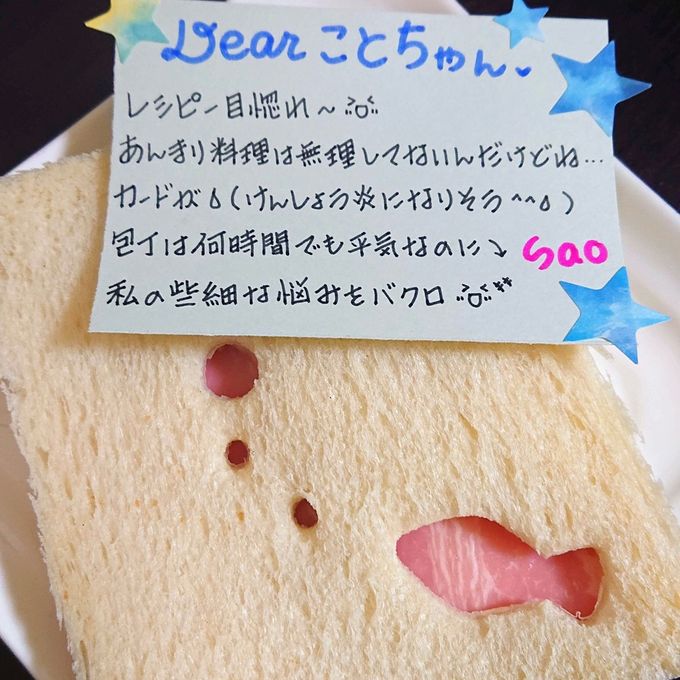 Dear ことちゃん
レシピ一目惚れ~
あんまり料理は無理してないんだけどね...
カードが(けんしょう炎になりそう^^)
包丁は何時間でも平気なのに↘
sao
私の些細な悩みをバクロ